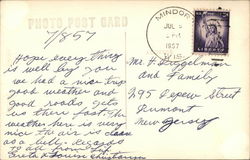 PHOTO POST CARD
7/8/57
Hope everything
is well by you
we had a nice trip
good weather and
good roads, gets
us there fast. The
weather here is very
nice the air is clean
as a lily. Regards
to all from
MINDORO
JUL 8
PM
1957
WIS.
LIBERTY
Mr. H. Dugelman
and Family
295 Depew Street
Dumont
New Jersey